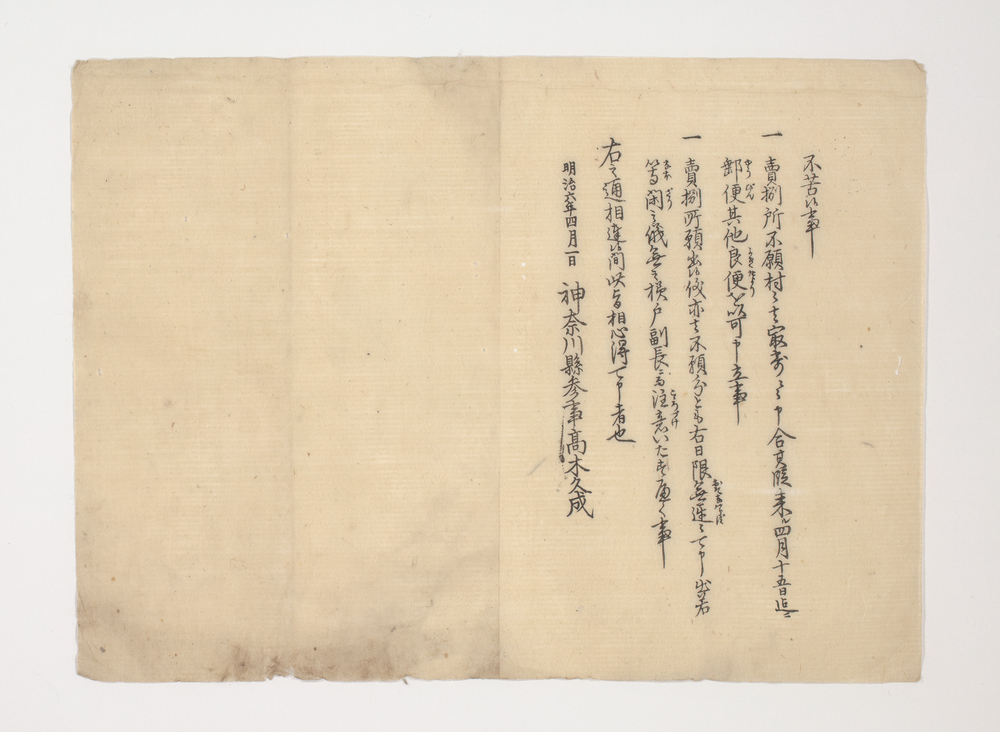 不苦候事
一 賣捌所不願村々者最寄々々申合其段来ル四月十五日迄ニ
郵便其他良便を以可申立事
一 賣捌所願出候儀亦者不願分とも右日限無遅々可申出若
等閑之儀無之様戸副長ニ而注意いたす可く事
右之通相達候簡此旨相心得可申者也
明治六年四月一日 神奈川縣参事高木久成